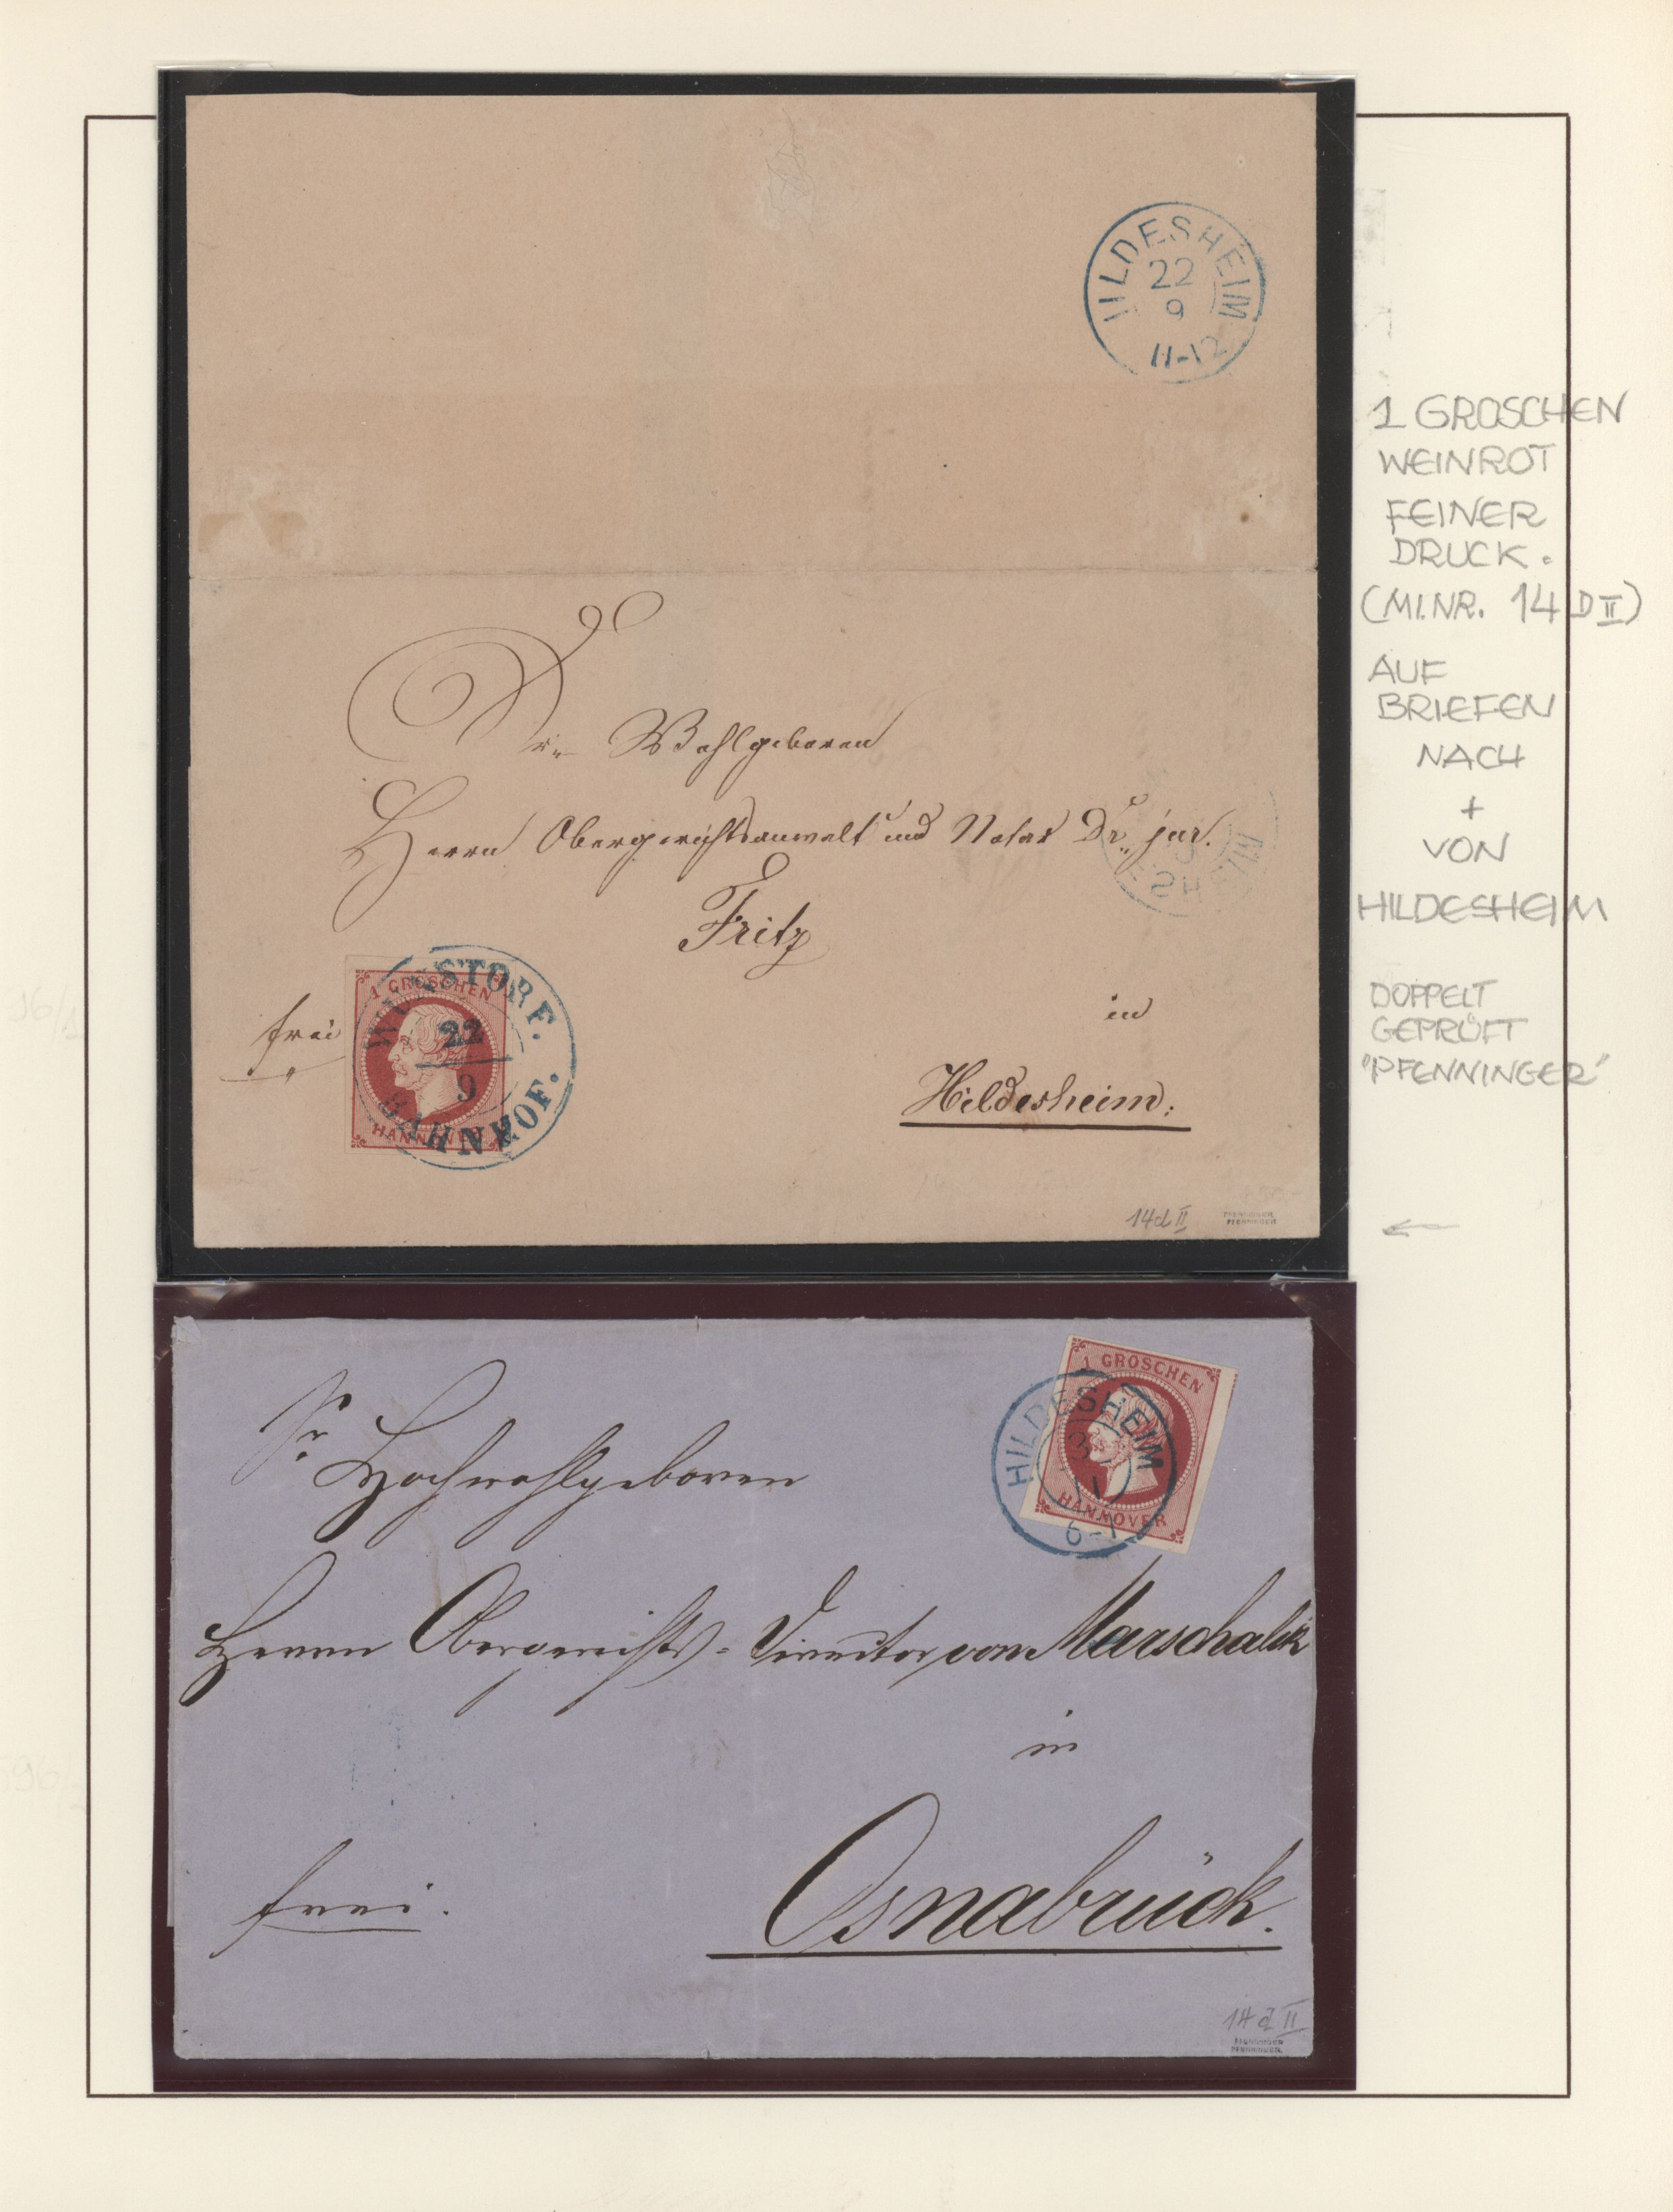 HILDESHEIM
22
9
11-12
Sr. Wohlgeboren
Herrn Obergerichtsanwalt und Notar Dr. jur.
Fritz
in
Hildesheim.
frei
1 GROSCHEN
HANNOVER
WUNSTORF.
22
9
BAHNHOF.
14d II
PFENNINGER
PFENNINGER
1 GROSCHEN
HANNOVER
HILDESHEIM
3
1
6-
Sr Hochwohlgeboren
Herrn Obergerichts-Director von Marschalck
in
Osnabrück.
frei.
14 d II
PFENNINGER
PFENNINGER
1 GROSCHEN
WEINROT
FEINER
DRUCK.
(MI.NR. 14 D II)
AUF
BRIEFEN
NACH
+
VON
HILDESHEIM
DOPPELT
GEPRÜFT
"PFENNINGER"